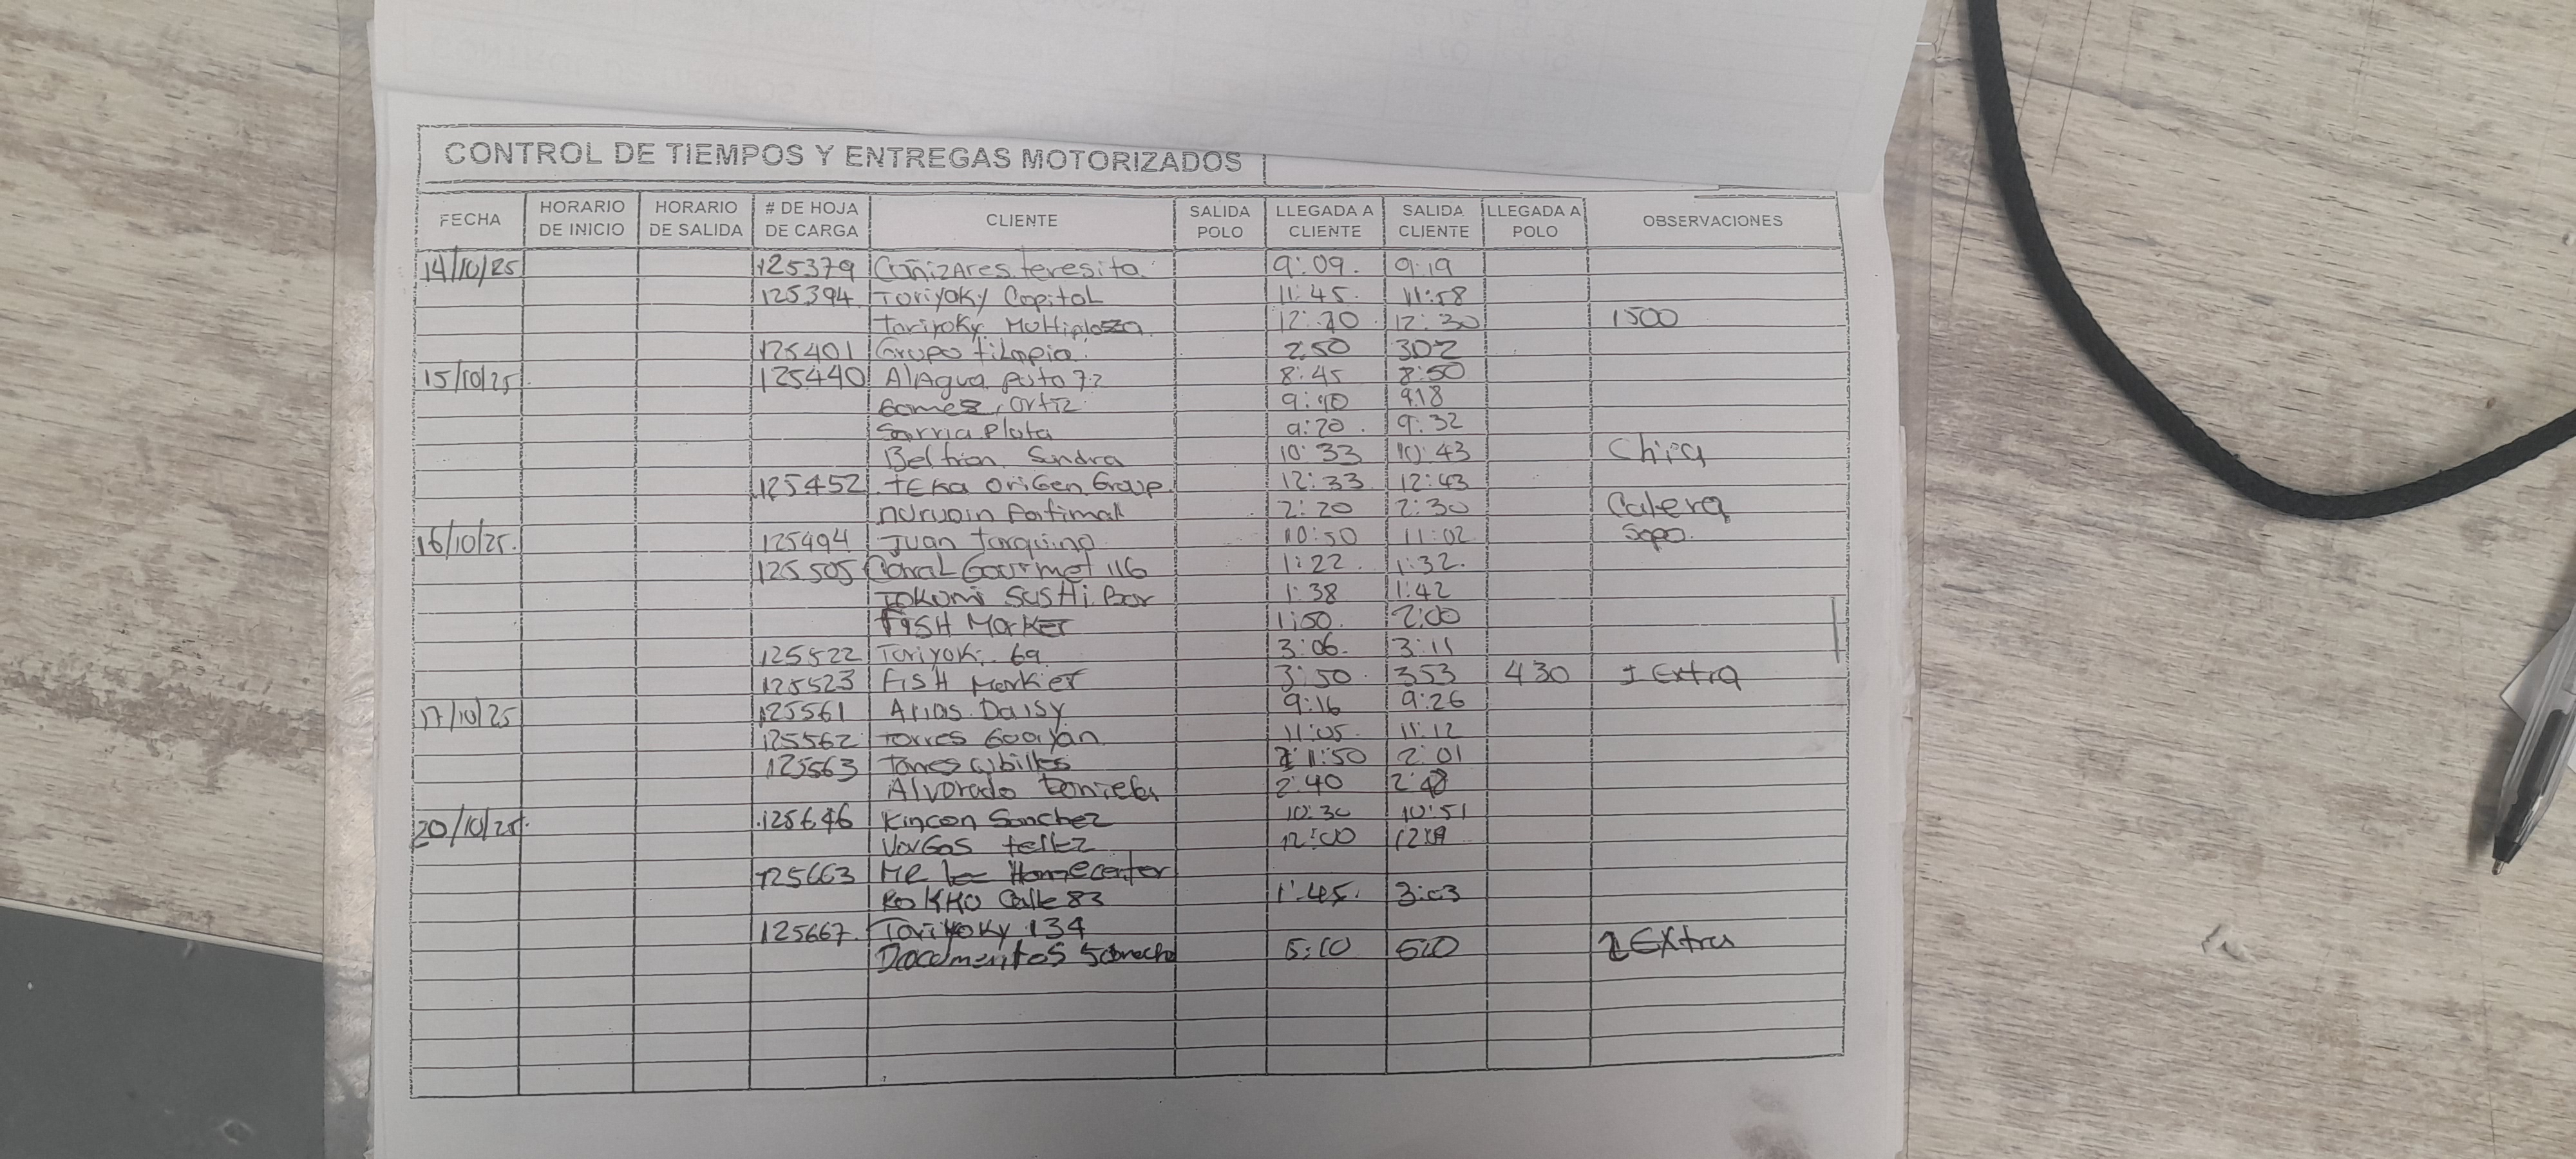 CONTROL DE TIEMPOS Y ENTREGAS MOTORIZADOS
FECHA HORARIO DE INICIO HORARIO DE SALIDA # DE HOJA DE CARGA CLIENTE SALIDA POLO LLEGADA A CLIENTE SALIDA CLIENTE LLEGADA A POLO OBSERVACIONES
14/10/25 125379 Cañizares teresita 9:09. 9:19
125394 Toriyoky Capital 11:45. 11:58
Toriyoky Multiplaza 12:20 12:30 1500
125401 Grupo tilapia 2:50 302
15/10/25 125440 AlAgua Pato 72 8:45 8:50
Gomez, Ortiz 9:10 9:18
Sarria Plata 9:20. 9:32
Beltran Sandra 10:33 10:43 Chia
125452 TEKA OriGen Group 12:33 12:43
Fatimah 2:20 2:30 Calera
16/10/25. 125494 Juan Tarquino 10:50 11:02 Sopo.
125505 Corral Gourmet 116 1:22. 1:32.
TOKUMI SusHi Bar 1:38 1:42
FISH MarKeT 1:50. 2:00
125522 Toriyoki 69 3:06. 3:11
125523 FISH MarKieT 3:50. 353 430 1 Extra
17/10/25 125561 Arias Daisy 9:16 9:26
125562 Torres Guayan 11:05. 11:12
125563 Torres Cubillos 11:50 2:01
Alvarado Daniela 2:40
20/10/25 125646 Rincon Sanchez 10:30 10:51
VarGas tellez 12:00
125663 Homecenter
KoKKO Calle 83 1:45. 3:03
125667. Toriyoky 134
Documentos 5:10 1 Extra